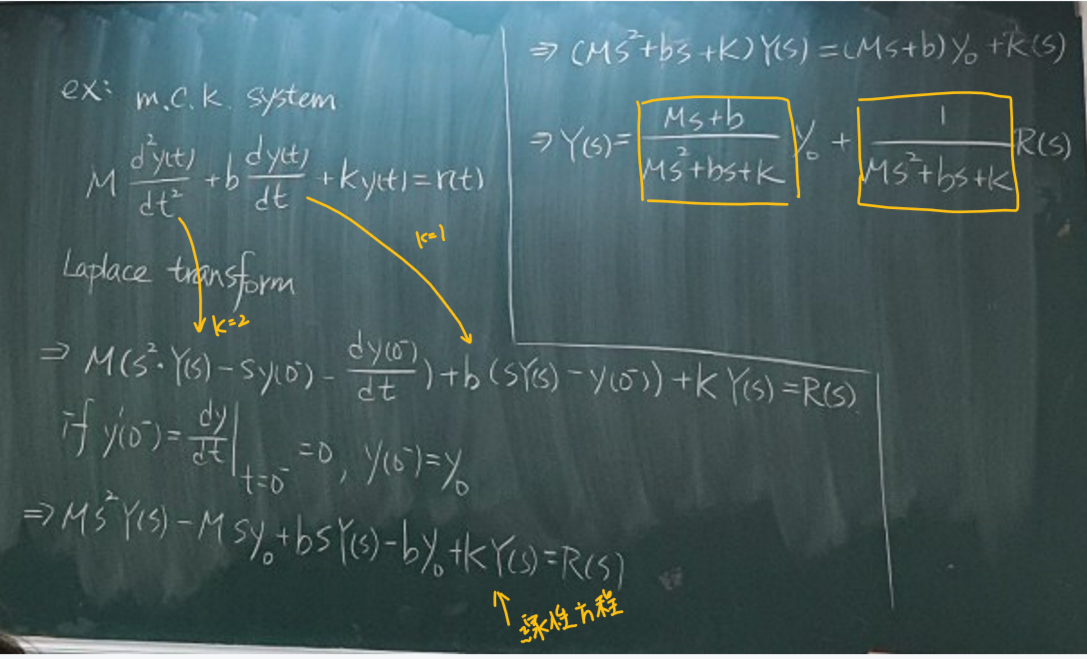 ex: m.c.k. system
M d²y(t)/dt² + b dy(t)/dt + ky(t) = r(t)
k=1
Laplace transform
k=2
⇒ M(s²·Y(s) - sy(0⁻) - dy(0⁻)/dt) + b(sY(s) - y(0⁻)) + K Y(s) = R(s)
if y'(0⁻) = dy/dt|t=0⁻ = 0, y(0⁻) = y₀
⇒ Ms²Y(s) - Msy₀ + bsY(s) - by₀ + kY(s) = R(s)
↑ 線性方程
⇒ (Ms²+bs+K)Y(s) = (Ms+b)y₀ + R(s)
⇒ Y(s) = (Ms+b)/(Ms²+bs+k) y₀ + 1/(Ms²+bs+k) R(s)